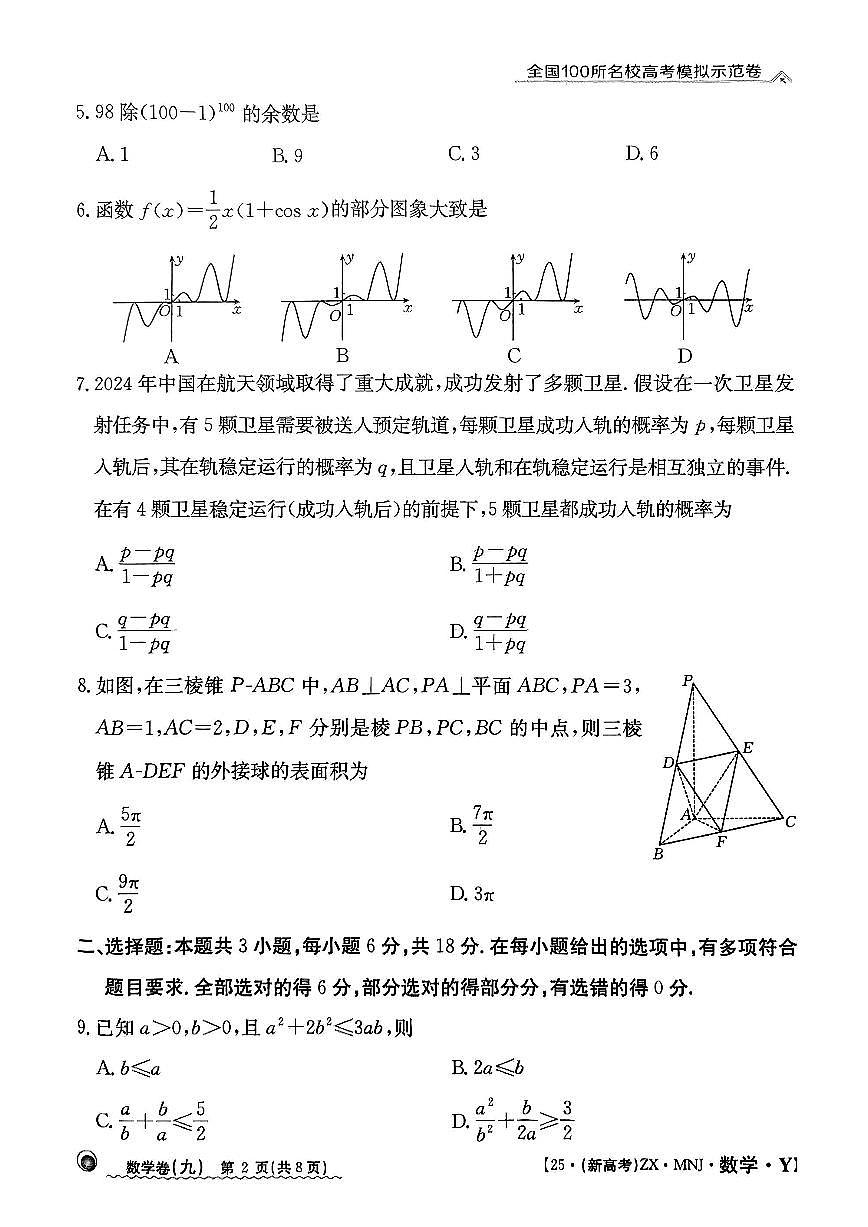 全国100所名校高考模拟示范卷
5. 98 除(100－1)¹⁰⁰ 的余数是
A. 1 B. 9 C. 3 D. 6
6. 函数 f(x)=1/2x(1+cos x)的部分图象大致是
y 1 O 1 x y 1 O 1 x y 1 O 1 x y 1 O 1 x
A B C D
7. 2024 年中国在航天领域取得了重大成就,成功发射了多颗卫星. 假设在一次卫星发
射任务中,有 5 颗卫星需要被送入预定轨道,每颗卫星成功入轨的概率为 p,每颗卫星
入轨后,其在轨稳定运行的概率为 q,且卫星入轨和在轨稳定运行是相互独立的事件.
在有 4 颗卫星稳定运行(成功入轨后)的前提下,5 颗卫星都成功入轨的概率为
A. (p－pq)/(1－pq) B. (p－pq)/(1+pq)
C. (q－pq)/(1－pq) D. (q－pq)/(1+pq)
8. 如图,在三棱锥 P-ABC 中,AB⊥AC,PA⊥平面 ABC,PA=3,
AB=1,AC=2,D,E,F 分别是棱 PB,PC,BC 的中点,则三棱
锥 A-DEF 的外接球的表面积为
A. 5π/2 B. 7π/2
C. 9π/2 D. 3π
P
E
D
A
C
F
B
二、选择题:本题共 3 小题,每小题 6 分,共 18 分. 在每小题给出的选项中,有多项符合
题目要求. 全部选对的得 6 分,部分选对的得部分分,有选错的得 0 分.
9. 已知 a>0,b>0,且 a²+2b²≤3ab,则
A. b≤a B. 2a≤b
C. a/b+b/a≤5/2 D. a²/b²+b/2a≥3/2
数学卷(九) 第 2 页(共 8 页)
【25·(新高考)ZX·MNJ·数学·Y】